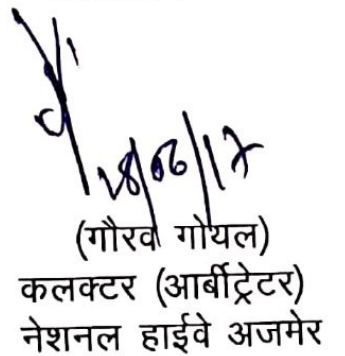 28/06/17
(गौरव गोयल)
कलक्टर (आर्बीट्रेटर)
नेशनल हाईवे अजमेर